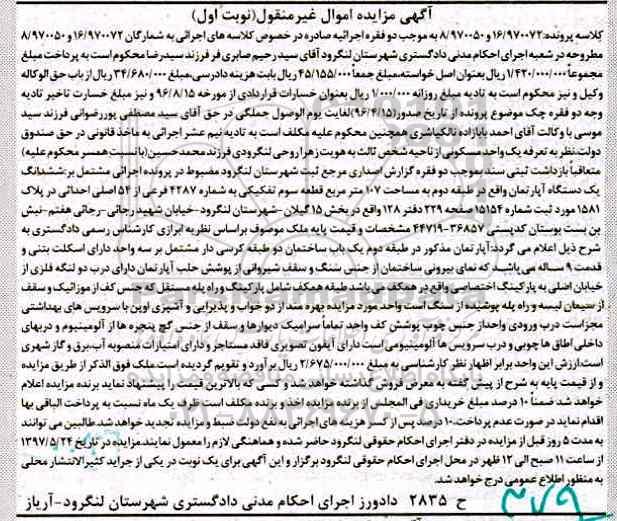 آگهی مزایده اموال غیرمنقول(نوبت اول)
کلاسه پرونده:۱۶/۹۷۰۰۷۲ و ۸/۹۷۰۰۵۰ به موجب دو فقره اجرائیه صادره در خصوص کلاسه های اجرائی به شمارگان ۱۶/۹۷۰۰۷۲ و ۸/۹۷۰۰۵۰
مطروحه در شعبه اجرای احکام مدنی دادگستری شهرستان لنگرود آقای سید رحیم صابری فر فرزند سیدرضا محکوم است به پرداخت مبلغ
مجموعاً ۱/۴۲۰/۰۰۰/۰۰۰ ریال بعنوان اصل خواسته،مبلغ جمعاً ۴۵/۱۵۵/۰۰۰ ریال بابت هزینه دادرسی،مبلغ ۳۴/۶۸۰/۰۰۰ ریال از باب حق الوکاله
وکیل و نیز محکوم است به تادیه مبلغ روزانه ۱/۰۰۰/۰۰۰ ریال بعنوان خسارات قراردادی از مورخه ۹۶/۸/۱۵ و نیز مبلغ خسارت تاخیر تادیه
وجه دو فقره چک موضوع پرونده از تاریخ صدور(۹۶/۴/۱۵)لغایت یوم الوصول جملگی در حق آقای سید مصطفی پوررضوانی فرزند سید
موسی با وکالت آقای احمد بابازاده تالکیاشری همچنین محکوم علیه مکلف است به تادیه نیم عشر اجرائی به ماخذ قانونی در حق صندوق
دولت،نظر به تعرفه یک واحد مسکونی از ناحیه شخص ثالث به هویت زهرا روحی لنگرودی فرزند محمدحسین(بانست همسر محکوم علیه)
متعاقباً بازداشت ثبتی سند بموجب دو فقره گزارش اصداری مرجع ثبت شهرستان لنگرود مضبوط در پرونده اجرائی مشتمل بر:ششدانگ
یک دستگاه آپارتمان واقع در طبقه دوم به مساحت ۱۰۷ متر مربع قطعه سوم تفکیکی به شماره ۴۲۸۷ فرعی از ۵۴ اصلی احداثی در پلاک
۱۵۸۱ مورد ثبت شماره ۱۵۱۵۴ صفحه ۲۲۹ دفتر ۱۲۸ واقع در بخش ۱۵ گیلان -شهرستان لنگرود-خیابان شهید رجائی-رجائی هفتم-نبش
بن بست بوستان کدپستی ۳۶۸۵۷-۴۴۷۱۹ مشخصات و قیمت پایه ملک موصوف براساس نظریه ابرازی کارشناس رسمی دادگستری به
شرح ذیل اعلام می گردد:آپارتمان مذکور در طبقه دوم یک باب ساختمان دو طبقه کرسی دار مشتمل بر سه واحد دارای اسکلت بتنی و
قدمت ۹ ساله می باشد که نمای بیرونی ساختمان از جنس سنگ و سقف شیروانی از پوشش حلب آپارتمان دارای درب دو لنگه فلزی از
خیابان اصلی به پارکینگ اختصاصی واقع در همکف می باشد طبقه همکف شامل پارکینگ و راه پله مستقل که جنس کف از موزائیک و سقف
از سیمان لیسه و راه پله پوشیده از سنگ است واحد مورد مزایده بهره مند از دو خواب و پذیرایی و آشپزی اوپن با سرویس های بهداشتی
مجزاست درب ورودی واحد از جنس چوب پوشش کف واحد تماماً سرامیک دیوارها و سقف از جنس گچ پنجره ها از آلومینیوم و دربهای
داخلی اطاق ها چوبی و درب سرویس ها آلومینیومی است دارای آیفون تصویری فاقد مستاجر و دارای امتیازات منصوبه آب،برق و گاز شهری
است،ارزش این واحد برابر اظهار نظر کارشناسی به مبلغ ۲/۶۷۵/۰۰۰/۰۰۰ ریال برآورد و تقویم گردیده است ملک فوق الذکر از طریق مزایده
و از قیمت پایه به شرح از پیش گفته به معرض فروش گذاشته خواهد شد و کسی که بالاترین قیمت را پیشنهاد نماید برنده مزایده اعلام
خواهد شد ضمناً ۱۰ درصد مبلغ خریداری فی المجلس از برنده مزایده اخذ و برنده مکلف است ظرف یک ماه نسبت به پرداخت الباقی بها
اقدام نماید در صورت عدم پرداخت،۱۰ درصد پس از کسر هزینه های اجرائی به نفع دولت ضبط و مزایده تجدید خواهد شد.طالبین می توانند
به مدت ۵ روز قبل از مزایده در دفتر اجرای احکام حقوقی لنگرود حاضر شده و هماهنگی لازم را معمول نمایند.مزایده در تاریخ ۱۳۹۷/۵/۲۴
از ساعت ۱۱ صبح الی ۱۲ ظهر در محل اجرای احکام حقوقی لنگرود برگزار و این آگهی برای یک نوبت در یکی از جراید کثیرالانتشار محلی
به منظور اطلاع عمومی درج خواهد شد.
ح ۲۸۳۵ دادورز اجرای احکام مدنی دادگستری شهرستان لنگرود-آریاز